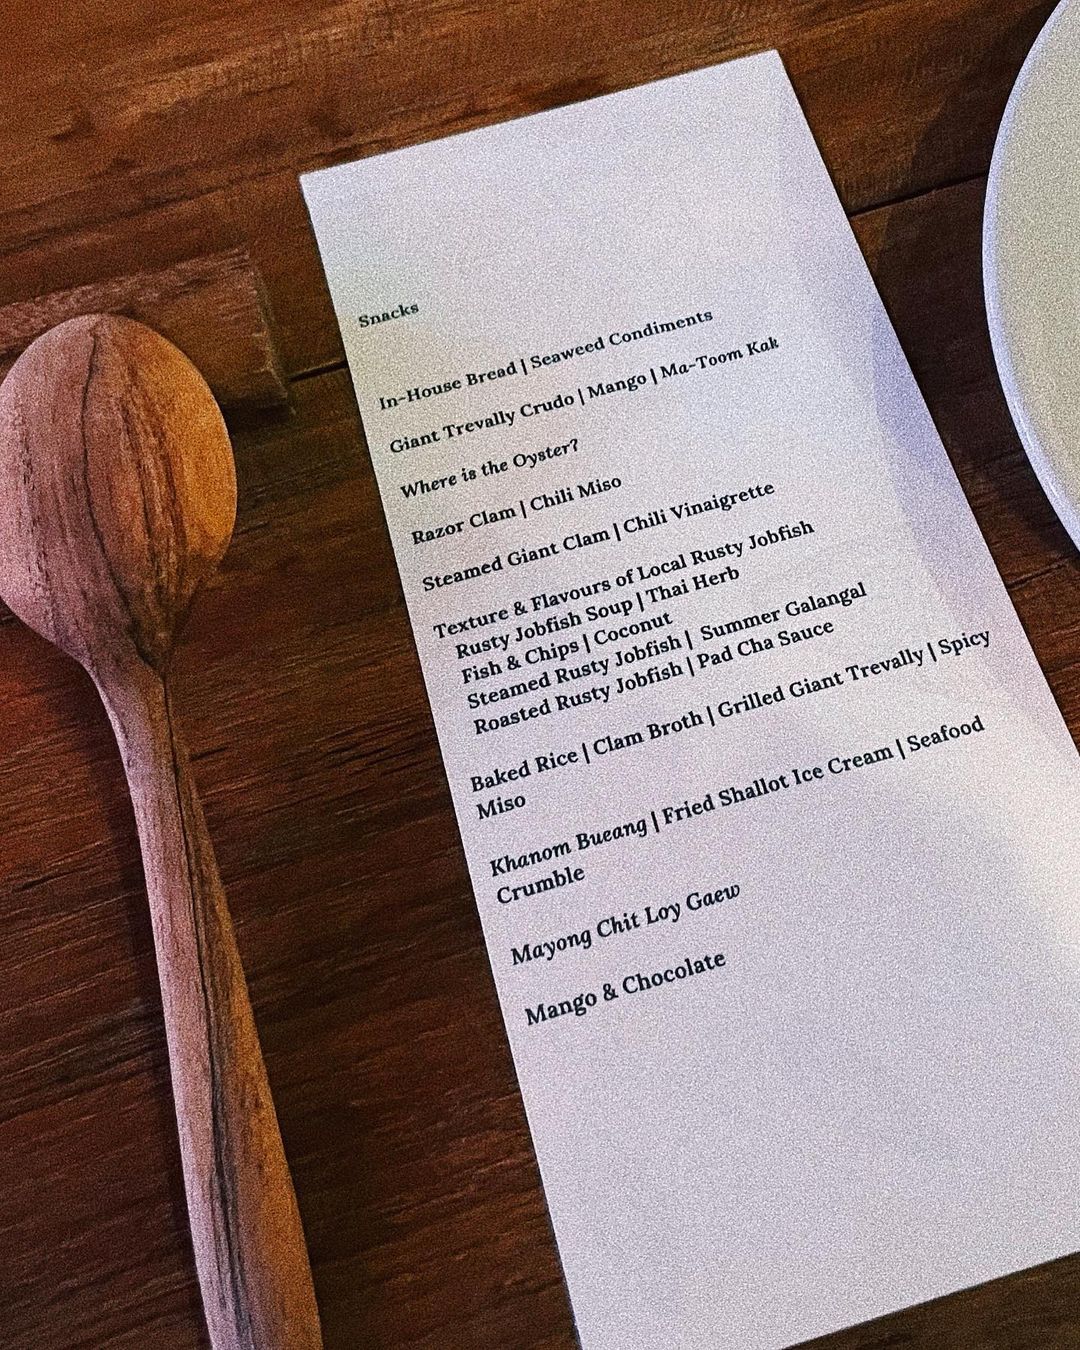 Snacks
In-House Bread | Seaweed Condiments
Giant Trevally Crudo | Mango | Ma-Toom Kak
Where is the Oyster?
Razor Clam | Chili Miso
Steamed Giant Clam | Chili Vinaigrette
Texture & Flavours of Local Rusty Jobfish
Rusty Jobfish Soup | Thai Herb
Fish & Chips | Coconut
Steamed Rusty Jobfish | Summer Galangal
Roasted Rusty Jobfish | Pad Cha Sauce
Baked Rice | Clam Broth | Grilled Giant Trevally | Spicy
Miso
Khanom Bueang | Fried Shallot Ice Cream | Seafood
Crumble
Mayong Chit Loy Gaew
Mango & Chocolate